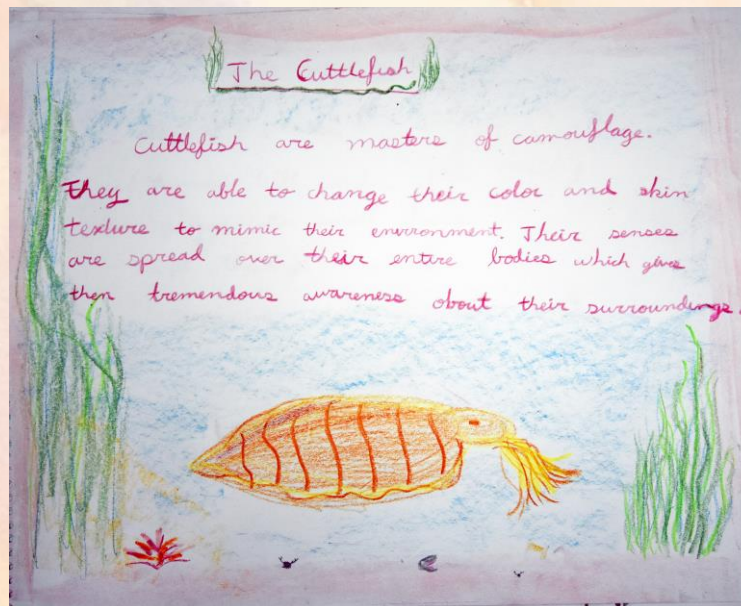 The Cuttlefish
Cuttlefish are masters of camouflage.
They are able to change their color and skin
texture to mimic their environment. Their senses
are spread over their entire bodies which gives
then tremendous awareness about their surroundings.